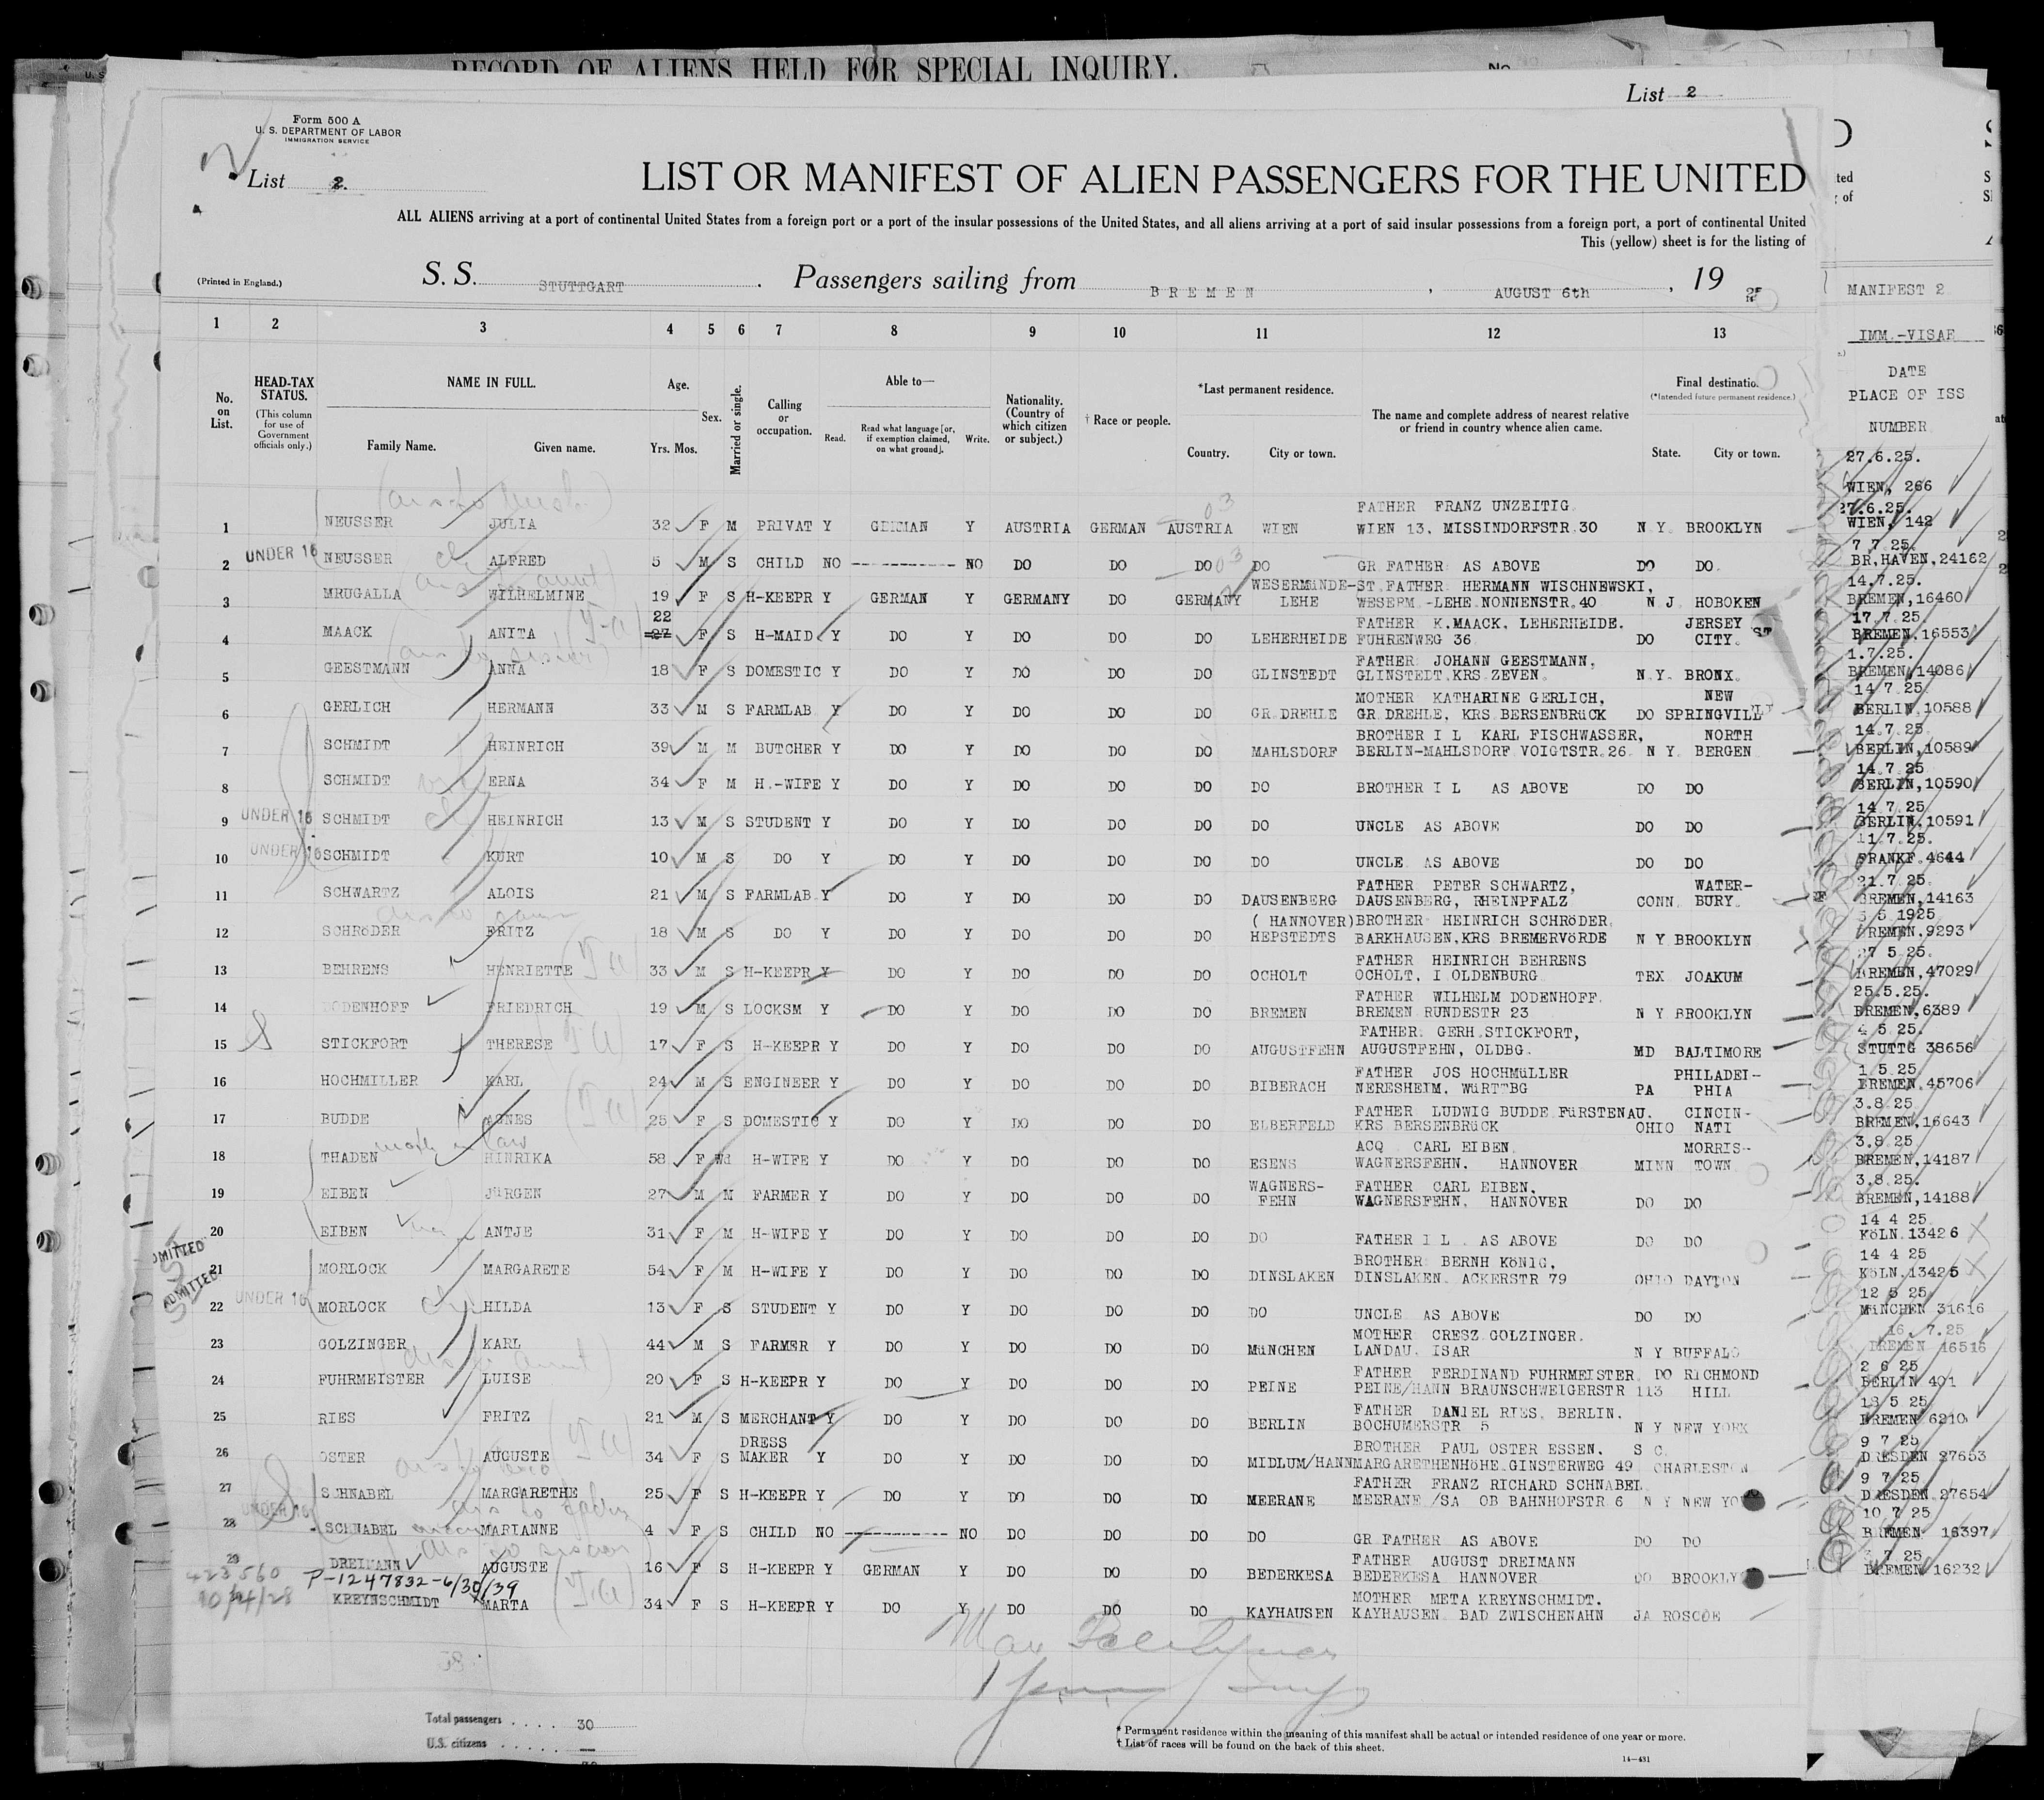 RECORD OF ALIENS HELD FOR SPECIAL INQUIRY.
List 2
Form 500 A
U. S. DEPARTMENT OF LABOR
IMMIGRATION SERVICE
List 2.
LIST OR MANIFEST OF ALIEN PASSENGERS FOR THE UNITED
ALL ALIENS arriving at a port of continental United States from a foreign port or a port of the insular possessions of the United States, and all aliens arriving at a port of said insular possessions from a foreign port, a port of continental United
This (yellow) sheet is for the listing of
(Printed in England.) S. S. STUTTGART . Passengers sailing from BREMEN , AUGUST 6th , 19 25
MANIFEST 2
1 2 3 4 5 6 7 8 9 10 11 12 13
IMM.-VISAE
DATE
PLACE OF ISS
NUMBER
No. on List.
HEAD-TAX STATUS. (This column for use of Government officials only.)
NAME IN FULL. Family Name. Given name.
Age. Yrs. Mos.
Sex.
Married or single.
Calling or occupation.
Able to— Read. Read what language [or, if exemption claimed, on what ground]. Write.
Nationality. (Country of which citizen or subject.)
† Race or people.
*Last permanent residence. Country. City or town.
The name and complete address of nearest relative or friend in country whence alien came.
Final destination (*Intended future permanent residence.) State. City or town.
27.6.25.
WIEN, 266
FATHER FRANZ UNZEITIG
1 NEUSSER JULIA 32 F M PRIVAT Y GERMAN Y AUSTRIA GERMAN AUSTRIA WIEN WIEN 13. MISSINDORFSTR.30 N Y. BROOKLYN
27.6.25.
WIEN, 142
2 UNDER 16 NEUSSER ALFRED 5 M S CHILD NO ----------- NO DO DO DO DO GR FATHER AS ABOVE DO DO.
7 7 25.
BR,HAVEN,24162
WESERMÜNDE- ST.FATHER HERMANN WISCHNEWSKI,
3 MRUGALLA WILHELMINE 19 F S H-KEEPR Y GERMAN Y GERMANY DO GERMANY LEHE WESERM.-LEHE NONNENSTR.40 N J. HOBOKEN
14.7.25.
BREMEN,16460
22 FATHER K.MAACK, LEHERHEIDE. JERSEY
4 MAACK ANITA 27 F S H-MAID Y DO Y DO DO DO LEHERHEIDE FUHRENWEG 36 DO CITY.
17.7.25.
BREMEN.16553
FATHER JOHANN GEESTMANN,
5 GEESTMANN ANNA 18 F S DOMESTIC Y DO Y DO DO DO GLINSTEDT GLINSTEDT.KRS.ZEVEN. N.Y. BRONX.
1.7.25.
BREMEN,14086
MOTHER KATHARINE GERLICH, NEW
6 GERLICH HERMANN 33 M S FARMLAB Y DO Y DO DO DO GR.DREHLE GR.DREHLE, KRS BERSENBRüCK DO SPRINGVILL
14 7 25.
BERLIN,10588
BROTHER I L KARL FISCHWASSER, NORTH
7 SCHMIDT HEINRICH 39 M M BUTCHER Y DO Y DO DO DO MAHLSDORF BERLIN-MAHLSDORF VOIGTSTR.26 N Y. BERGEN
14.7.25.
BERLIN,10589
8 SCHMIDT ERNA 34 F M H.-WIFE Y DO Y DO DO DO DO BROTHER I L AS ABOVE DO DO
14.7.25
BERLIN,10590
9 UNDER 16 SCHMIDT HEINRICH 13 M S STUDENT Y DO Y DO DO DO DO UNCLE AS ABOVE DO DO
14 7 25
BERLIN,10591
10 UNDER 16 SCHMIDT KURT 10 M S DO Y DO Y DO DO DO DO UNCLE AS ABOVE DO DO
11.7.25.
FRANKF.4644
FATHER PETER SCHWARTZ, WATER-
11 SCHWARTZ ALOIS 21 M S FARMLAB Y DO Y DO DO DO DAUSENBERG DAUSENBERG, RHEINPFALZ CONN. BURY.
21.7.25.
BREMEN,14163
( HANNOVER) BROTHER HEINRICH SCHRöDER
12 SCHRöDER FRITZ 18 M S DO Y DO Y DO DO DO HEPSTEDTS BARKHAUSEN,KRS BREMERVöRDE N Y BROOKLYN
5 5 1925
BREMEN,9293
FATHER HEINRICH BEHRENS
13 BEHRENS HENRIETTE 33 M S H-KEEPR Y DO Y DO DO DO OCHOLT OCHOLT, I OLDENBURG TEX JOAKUM
27 5 25.
BREMEN,47029
FATHER WILHELM DODENHOFF.
14 DODENHOFF FRIEDRICH 19 M S LOCKSM Y DO Y DO DO DO BREMEN BREMEN RUNDESTR 23 N Y BROOKLYN
25.5.25.
BREMEN,6389
FATHER GERH.STICKFORT,
15 STICKFORT THERESE 17 F S H-KEEPR Y DO Y DO DO DO AUGUSTFEHN AUGUSTFEHN, OLDBG. MD BALTIMORE
4 5 25.
STUTTG 38656
FATHER JOS HOCHMüLLER PHILADEI-
16 HOCHMILLER KARL 24 M S ENGINEER Y DO Y DO DO DO BIBERACH NERESHEIM, WüRTTBG PA PHIA
1 5 25
BREMEN.45706
FATHER LUDWIG BUDDE FüRSTENAU. CINCIN-
17 BUDDE AGNES 25 F S DOMESTIC Y DO Y DO DO DO ELBERFELD KRS BERSENBRüCK OHIO NATI
3.8 25
BREMEN,16643
ACQ CARL EIBEN. MORRIS-
18 THADEN HINRIKA 58 F Wd H-WIFE Y DO Y DO DO DO ESENS WAGNERSFEHN. HANNOVER MINN TOWN
3.8 25
BREMEN,14187
WAGNERS- FATHER CARL EIBEN.
19 EIBEN JüRGEN 27 M M FARMER Y DO Y DO DO DO FEHN WAGNERSFEHN. HANNOVER DO DO
3.8.25.
BREMEN,14188
20 EIBEN ANTJE 31 F M H-WIFE Y DO Y DO DO DO DO FATHER I L AS ABOVE DO DO
14 4 25
KöLN.13426
ADMITTED
BROTHER BERNH KöNIG,
21 MORLOCK MARGARETE 54 F M H-WIFE Y DO Y DO DO DO DINSLAKEN DINSLAKEN ACKERSTR 79 OHIO DAYTON
14 4 25
KöLN.13425
ADMITTED
22 UNDER 16 MORLOCK HILDA 13 F S STUDENT Y DO Y DO DO DO DO UNCLE AS ABOVE DO DO
12 5 25.
MüNCHEN 31616
MOTHER CRESZ GOLZINGER.
23 GOLZINGER KARL 44 M S FARMER Y DO Y DO DO DO MüNCHEN LANDAU. ISAR N Y BUFFALO
16. 7.25
BREMEN 16516
FATHER FERDINAND FUHRMEISTER DO RICHMOND
24 FUHRMEISTER LUISE 20 F S H-KEEPR Y DO Y DO DO DO PEINE PEINE/HANN BRAUNSCHWEIGERSTR 113 HILL
2 6 25
BERLIN 401
FATHER DANIEL RIES, BERLIN.
25 RIES FRITZ 21 M S MERCHANT Y DO Y DO DO DO BERLIN BOCHUMERSTR 5 N Y NEW YORK
BREMEN 6210
DRESS BROTHER PAUL OSTER ESSEN. S C.
26 OSTER AUGUSTE 34 F S MAKER Y DO Y DO DO DO MIDLUM/HANN MARGARETHENHöHE GINSTERWEG 49 CHARLESTON
9 7 25
DRESDEN 27653
FATHER FRANZ RICHARD SCHNABEL
27 SCHNABEL MARGARETHE 25 F S H-KEEPR Y DO Y DO DO DO MEERANE MEERANE /SA OB BAHNHOFSTR 6 N Y NEW YO
9 7 25
DRESDEN 27654
28 UNDER 16 SCHNABEL MARIANNE 4 F S CHILD NO ----------- NO DO DO DO DO GR FATHER AS ABOVE DO DO
10 7 25
BREMEN 16397
FATHER AUGUST DREIMANN
29 DREIMANN AUGUSTE 16 F S H-KEEPR Y GERMAN Y DO DO DO BEDERKESA BEDERKESA HANNOVER DO BROOKLY
3 7 25
BREMEN 16232
423560 P-1247832-6/30/39
10/14/28
MOTHER META KREYNSCHMIDT.
KREYNSCHMIDT MARTA 34 F S H-KEEPR Y DO Y DO DO DO KAYHAUSEN KAYHAUSEN BAD ZWISCHENAHN JA ROSCOE
Total passengers . . . . 30
U.S. citizens . . . . . —
* Permanent residence within the meaning of this manifest shall be actual or intended residence of one year or more.
† List of races will be found on the back of this sheet.
14—431